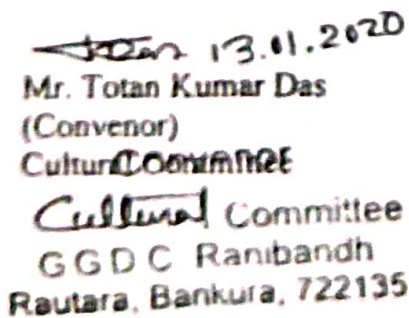 13.01.2020
Mr. Totan Kumar Das
(Convenor)
Cultural Committee
GGDC Ranibandh
Rautara, Bankura, 722135